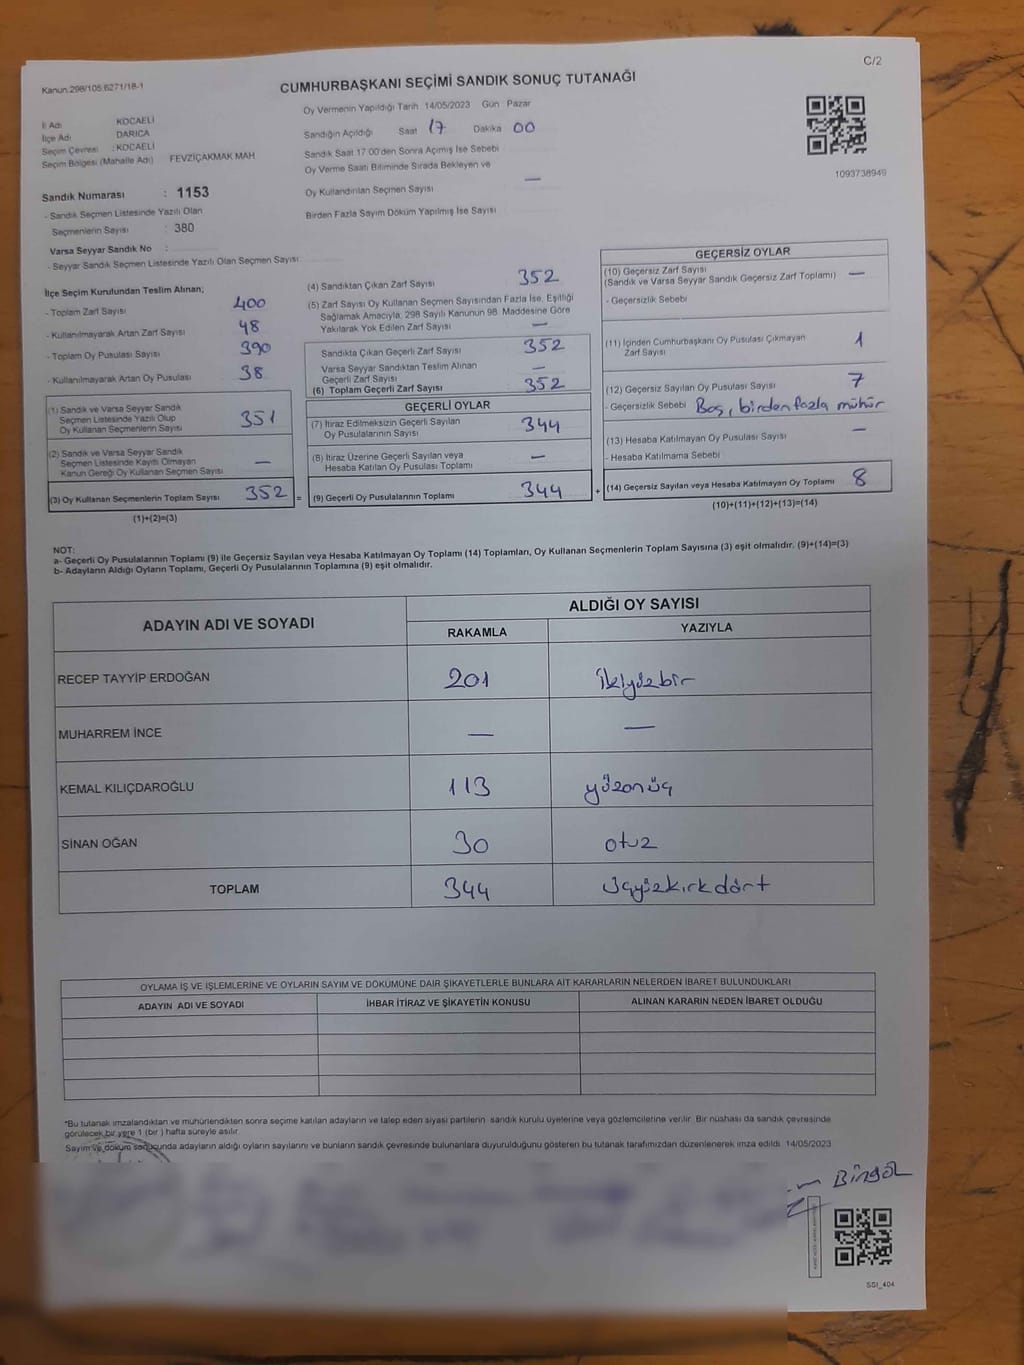 C/2
Kanun:298/105.6271/18-1
CUMHURBAŞKANI SEÇİMİ SANDIK SONUÇ TUTANAĞI
İl Adı : KOCAELİ
İlçe Adı : DARICA
Seçim Çevresi : KOCAELİ
Seçim Bölgesi (Mahalle Adı) FEVZİÇAKMAK MAH
Oy Vermenin Yapıldığı Tarih 14/05/2023 Gün Pazar
Sandığın Açıldığı Saat 17 Dakika 00
Sandık Saat 17:00'den Sonra Açılmış İse Sebebi
Oy Verme Saati Bitiminde Sırada Bekleyen ve
Oy Kullandırılan Seçmen Sayısı —
Birden Fazla Sayım Döküm Yapılmış İse Sayısı
1093738949
Sandık Numarası : 1153
- Sandık Seçmen Listesinde Yazılı Olan
Seçmenlerin Sayısı : 380
Varsa Seyyar Sandık No :
- Seyyar Sandık Seçmen Listesinde Yazılı Olan Seçmen Sayısı
İlçe Seçim Kurulundan Teslim Alınan;
- Toplam Zarf Sayısı 400
- Kullanılmayarak Artan Zarf Sayısı 48
- Toplam Oy Pusulası Sayısı 390
- Kullanılmayarak Artan Oy Pusulası 38
(1) Sandık ve Varsa Seyyar Sandık
Seçmen Listesinde Yazılı Olup
Oy Kullanan Seçmenlerin Sayısı 351
(2) Sandık ve Varsa Seyyar Sandık
Seçmen Listesinde Kayıtlı Olmayan
Kanun Gereği Oy Kullanan Seçmen Sayısı —
(3) Oy Kullanan Seçmenlerin Toplam Sayısı 352 =
(1)+(2)=(3)
(4) Sandıktan Çıkan Zarf Sayısı 352
(5) Zarf Sayısı Oy Kullanan Seçmen Sayısından Fazla İse, Eşitliği
Sağlamak Amacıyla; 298 Sayılı Kanunun 98. Maddesine Göre
Yakılarak Yok Edilen Zarf Sayısı —
Sandıkta Çıkan Geçerli Zarf Sayısı 352
Varsa Seyyar Sandıktan Teslim Alınan
Geçerli Zarf Sayısı —
(6) Toplam Geçerli Zarf Sayısı 352
GEÇERLİ OYLAR
(7) İtiraz Edilmeksizin Geçerli Sayılan
Oy Pusulalarının Sayısı 344
(8) İtiraz Üzerine Geçerli Sayılan veya
Hesaba Katılan Oy Pusulası Toplamı —
(9) Geçerli Oy Pusulalarının Toplamı 344 +
GEÇERSİZ OYLAR
(10) Geçersiz Zarf Sayısı
(Sandık ve Varsa Seyyar Sandık Geçersiz Zarf Toplamı) —
- Geçersizlik Sebebi
(11) İçinden Cumhurbaşkanı Oy Pusulası Çıkmayan
Zarf Sayısı 1
(12) Geçersiz Sayılan Oy Pusulası Sayısı 7
- Geçersizlik Sebebi Boş, birden fazla mühür
(13) Hesaba Katılmayan Oy Pusulası Sayısı —
- Hesaba Katılmama Sebebi
(14) Geçersiz Sayılan veya Hesaba Katılmayan Oy Toplamı 8
(10)+(11)+(12)+(13)=(14)
NOT:
a- Geçerli Oy Pusulalarının Toplamı (9) ile Geçersiz Sayılan veya Hesaba Katılmayan Oy Toplamı (14) Toplamları, Oy Kullanan Seçmenlerin Toplam Sayısına (3) eşit olmalıdır. (9)+(14)=(3)
b- Adayların Aldığı Oyların Toplamı, Geçerli Oy Pusulalarının Toplamına (9) eşit olmalıdır.
ADAYIN ADI VE SOYADI ALDIĞI OY SAYISI
RAKAMLA YAZIYLA
RECEP TAYYİP ERDOĞAN 201 ikiyüzbir
MUHARREM İNCE — —
KEMAL KILIÇDAROĞLU 113 yüzonüç
SİNAN OĞAN 30 otuz
TOPLAM 344 üçyüzkırkdört
OYLAMA İŞ VE İŞLEMLERİNE VE OYLARIN SAYIM VE DÖKÜMÜNE DAİR ŞİKAYETLERLE BUNLARA AİT KARARLARIN NELERDEN İBARET BULUNDUKLARI
ADAYIN ADI VE SOYADI İHBAR İTİRAZ VE ŞİKAYETİN KONUSU ALINAN KARARIN NEDEN İBARET OLDUĞU
*Bu tutanak imzalandıktan ve mühürlendikten sonra seçime katılan adayların ve talep eden siyasi partilerin sandık kurulu üyelerine veya gözlemcilerine verilir. Bir nüshası da sandık çevresinde
görülecek bir yere 1 (bir) hafta süreyle asılır.
Sayım ve döküm sonucunda adayların aldığı oyların sayılarını ve bunların sandık çevresinde bulunanlara duyurulduğunu gösteren bu tutanak tarafımızdan düzenlenerek imza edildi. 14/05/2023
Bingöl
SSI_404